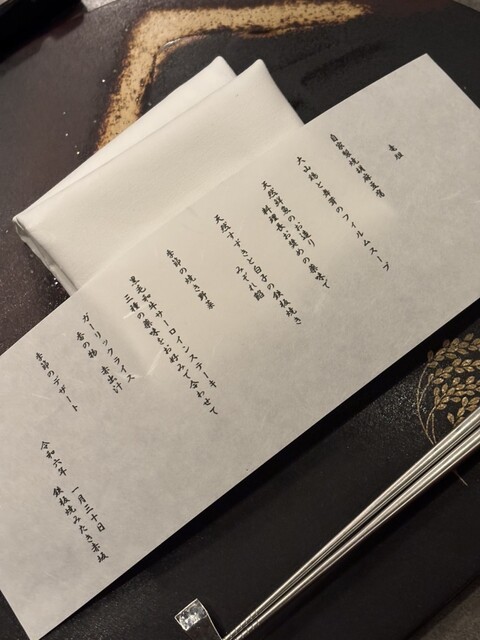 自家製焼胡麻豆腐
大山鶏と寿茸のフィルムスープ
天然鮮魚のお造り
料理長お奨めの薬味で
天然すずきと白子の鉄板焼き
みぞれ餡
季節の焼き野菜
黒毛和牛サーロインステーキ
三種の薬味をお好みで合わせて
ガーリックライス
香の物 赤出汁
季節のデザート
令和六年 一月三十日
鉄板焼みたき赤坂